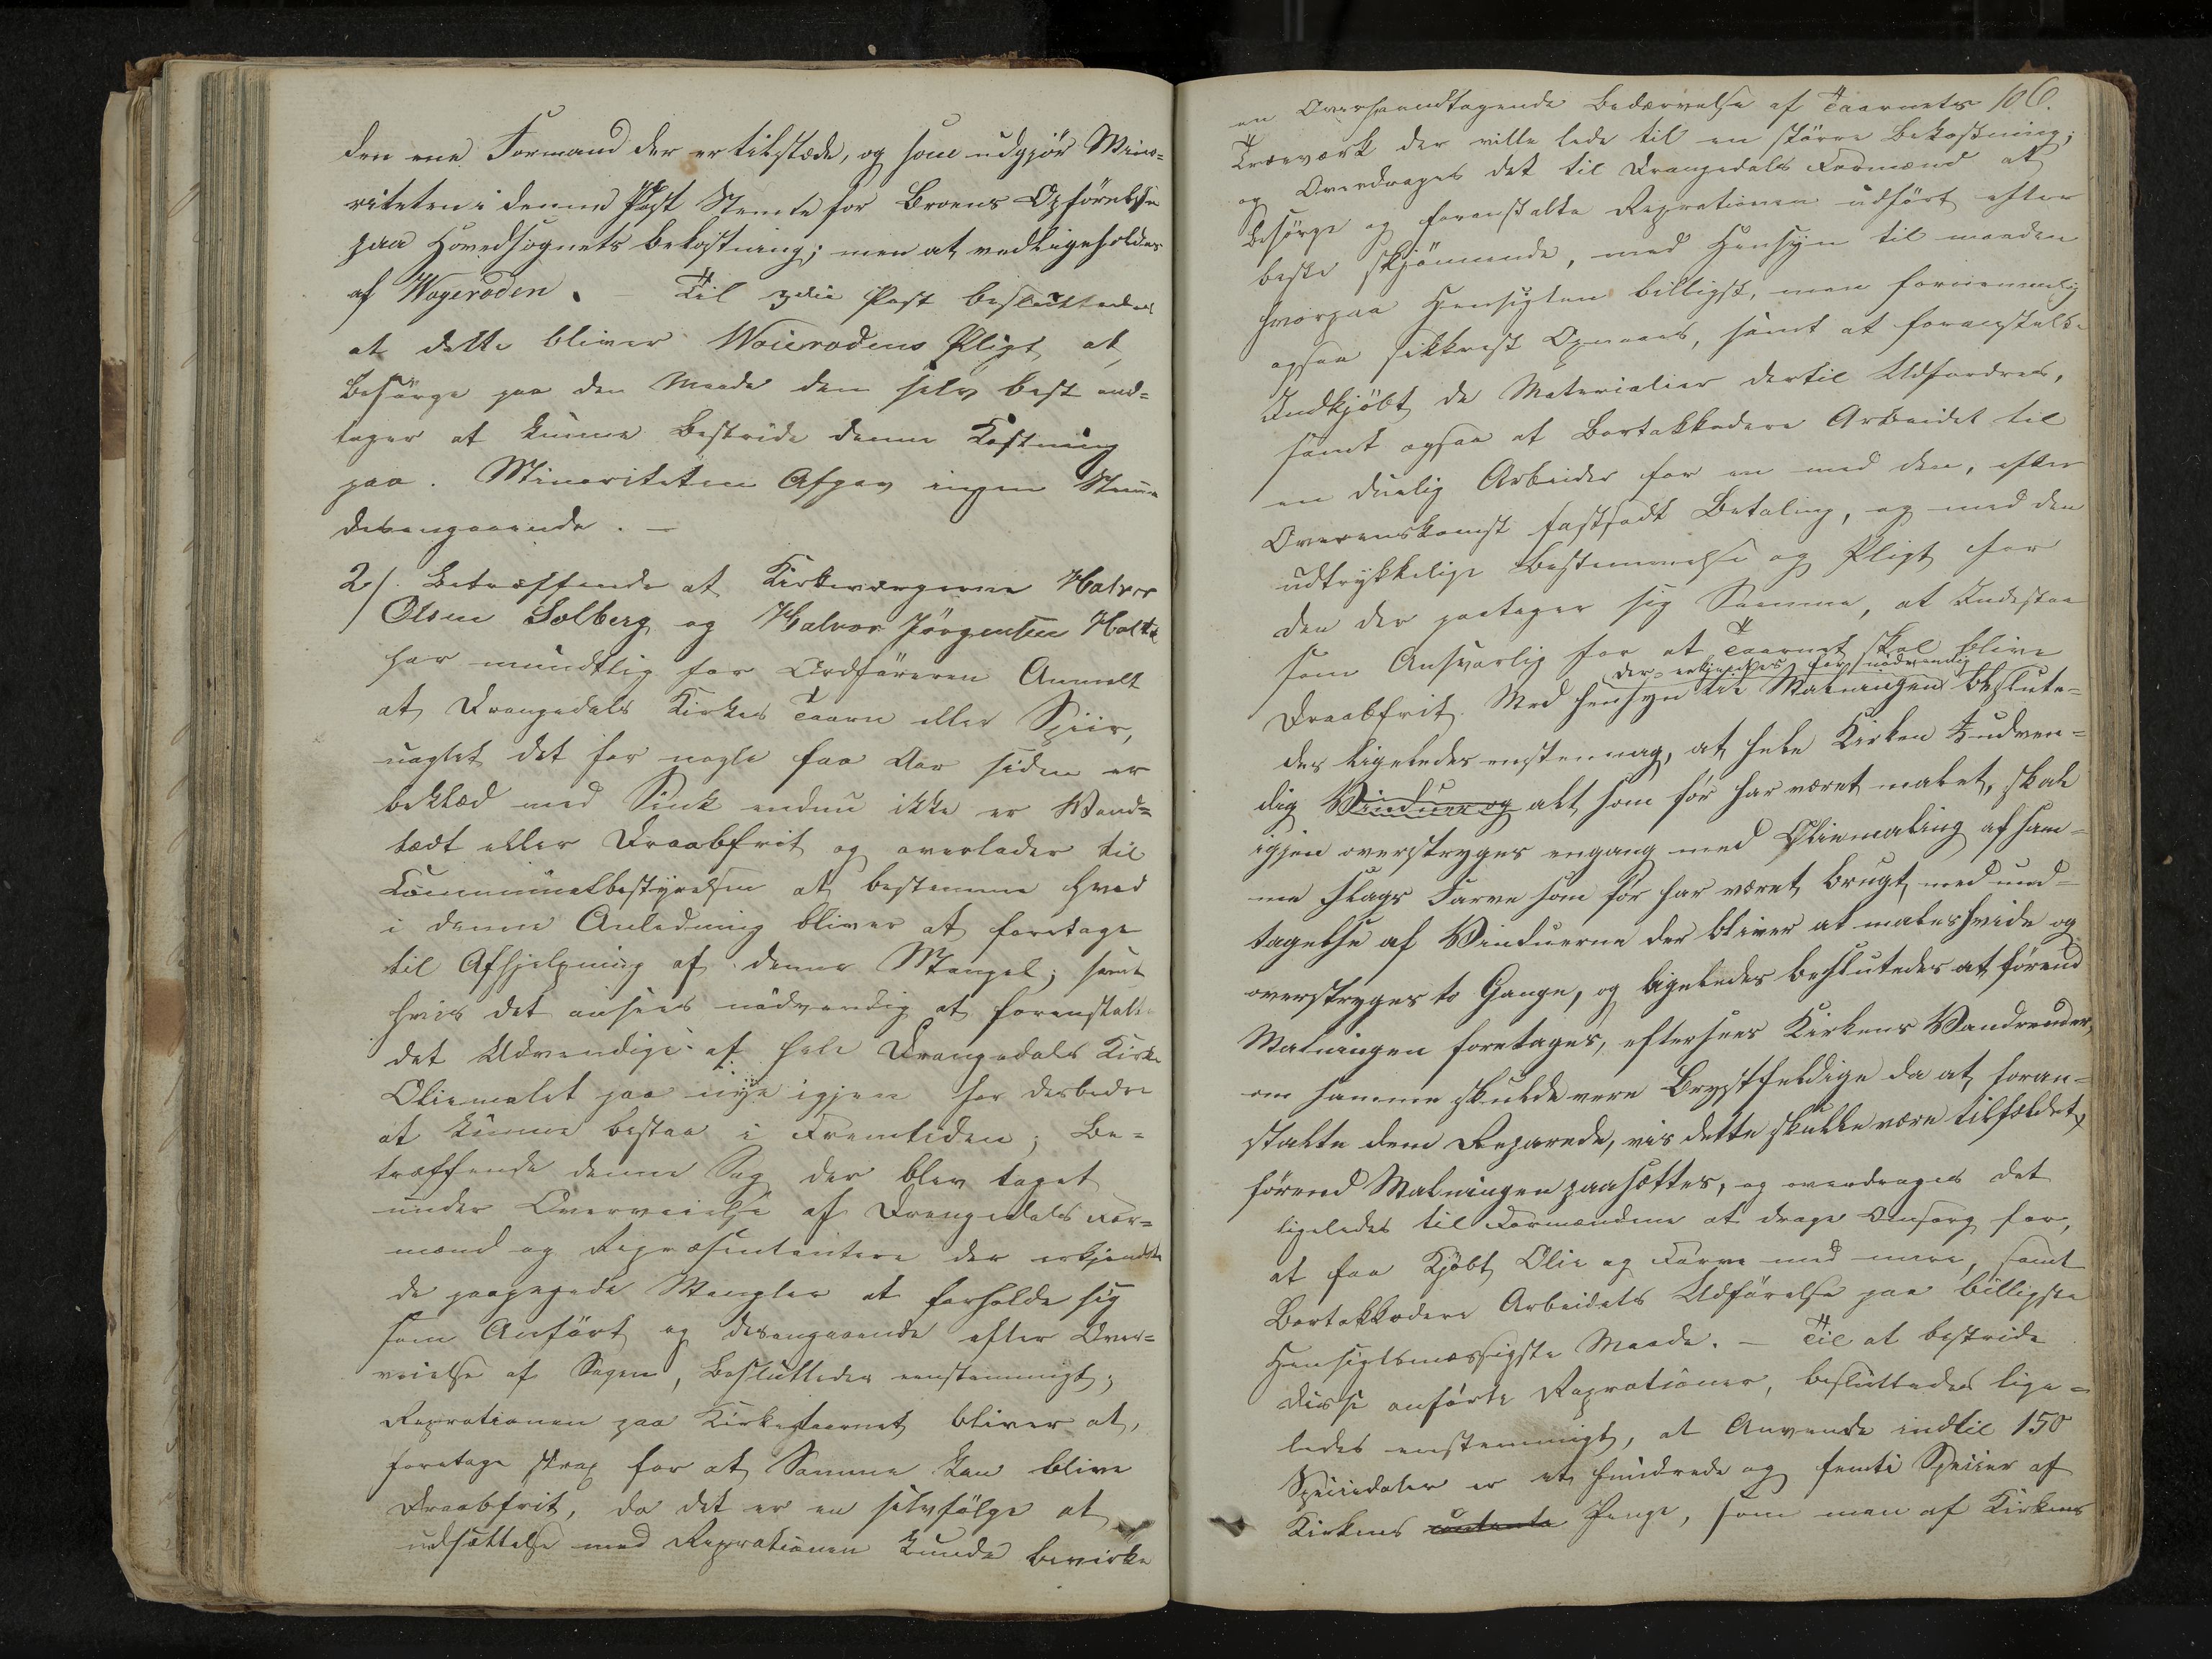 den ene Formand der er tilstæde, og som udgjör Mino=
riteten i denne Post Stemte for Broens Opförelse
paa Hovedsognets bekostning; men at vedligeholdes
af Wogeroden. – Til 3die Post besluttedes
at dette bliver Woierodens Pligt at,
besörge paa den Maade den selv best and=
tager at kunne bestride denne Kostning
paa. Minoriteten Afgav ingen Stemme
desangaaende. –
2/. Betræffende at Kirkeværgerne Halvor
Olsen Solberg og Halvor Jörgensen Holte
har mundtlig for Ordföreren Anmelt
at Drangedals Kirkes Taarn eller Spiir,
uagtet det for nogle faa Aar siden er
beklæd med Sink endnu ikke er Wand=
tædt eller Draabfrit og overlader til
Communalbestyrelsen at bestemme hvad
i denne Anledning bliver at foretage
til Afhjelpning af denne Mangel; samt
hvis det ansees nödvendig at foranstalte
det Udvendige af hele Drangedals Kirke
Oliemalet paa nye igjen for desbedre
at kunne bestaa i Fremtiden; Be=
træffende denne Sag der blev taget
under Overveielse af Drangedals For=
mænd og Repræsentantere der erkjendte
de paapegede Mangler at forholde sig
som Anfört og desangaaende efter Over=
veielse af Sagen, Besluttedes eenstemmigt;
Reprationen paa Kirketaarnet bliver at,
foretage strax for at Samme kan blive
Draabfrit, da det er en selvfölge at
udsættelse med Reprationen kunde bevirke
106.
en Overhaandtagende bedærvelse af Taarnets
Træeværk der ville lede til en större bekostning;
og Overdrages det til Drangedals Formænd at
besörge og foranstalte Reprationen udfört efter
beste skjönnende, med Hensyn til maaden
hvorpaa Hensigten billigst, men fornemmelig
ogsaa sikkrest Opnaaes, samt at foranstalte
Indkjöbt de Materialier dertil Udfordres,
samt ogsaa at Bortakkodere Arbeidet til
en duelig Arbeider for en med den, efter
Overenskomst fastsadt Betaling, og med den
udtrykkelige bestemmelse og Pligt for
den der paatager sig Samme, at Indestaa
som Ansvarlig for at Taarnet skal blive
der erkjendtes for nödvendig
Draabfrit. Med hensyn til Malningen beslute=
des ligeledes enstemmig, at hele Kirken udven=
dig Vinduer og alt som för har været malet, skal
igjen overstryges engang med Oliemaling af sam=
me slags Farve som för har været brugt med und=
tagelse af Vinduerne der bliver at males hvide og
overstryges to Gange, og ligeledes beslutedes at, förend
Malningen foretages, eftersees Kirkens Vandrender,
om samme skulde være Brystfeldige da at foran=
stalte dem Reparede, vis dette skulle være tilfældet,
förend Malningen paasættes, og overdrages det
ligeledes til Formændene at drage Omsorg for,
at faa Kjöbt Olie og Farve med mere, samt
Bortakkodere Arbeidets Udförelse paa billigste
Hensigtsmæssigste Maade. – Til at bestride
disse anförte Reprationer, besluttedes lige=
ledes enstemmigt, at Anvende indtil 150
Speciedaler er et hundrede og femti Specier af
Kirkens contante Penge, som man af Kirkens